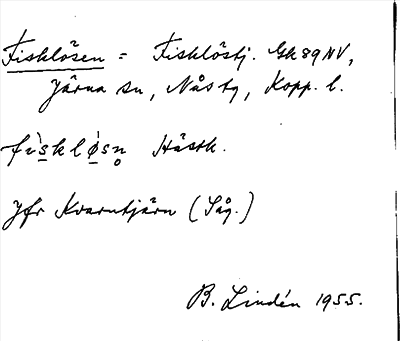 Fisklösen = Fisklöstj. Gk 89 NV,
Järna sn, Nås tg, Kopp. l.
fìsklø̀sn̥ Hästk.
Jfr Kvarntjärn (Såg.)
B. Lindén 1955.